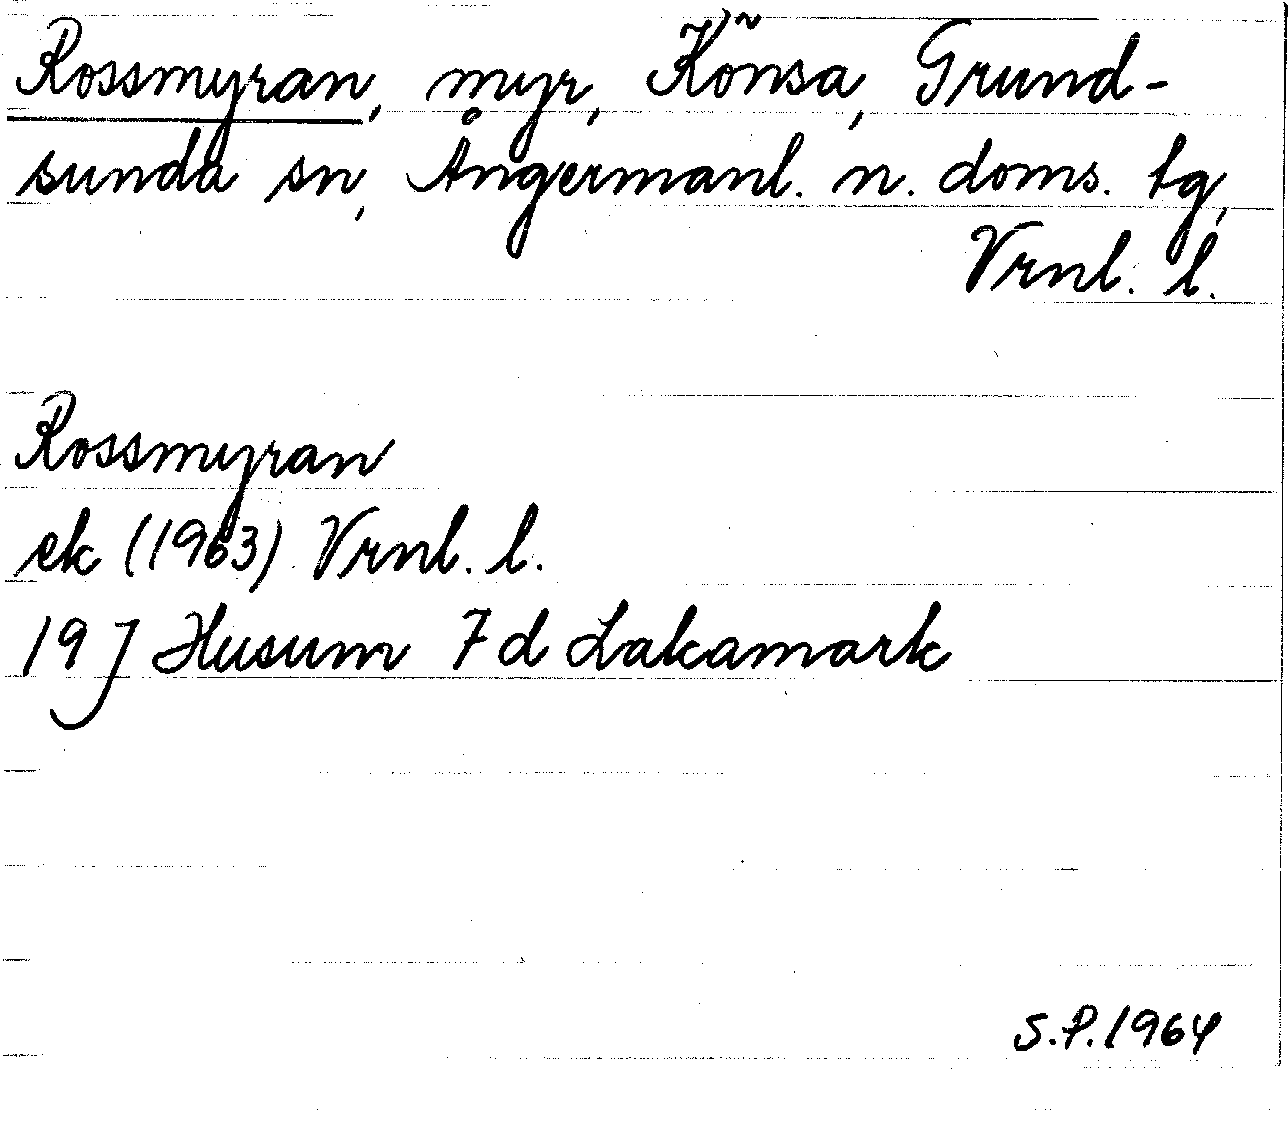 Rossmyran, myr, Könsa, Grund-
sunda sn, Ångermanl. n. doms. tg,
Vrnl. l.
Rossmyran
ek (1963) Vrnl. l.
19 J Husum 7 d Lakamark
S.P. 1964